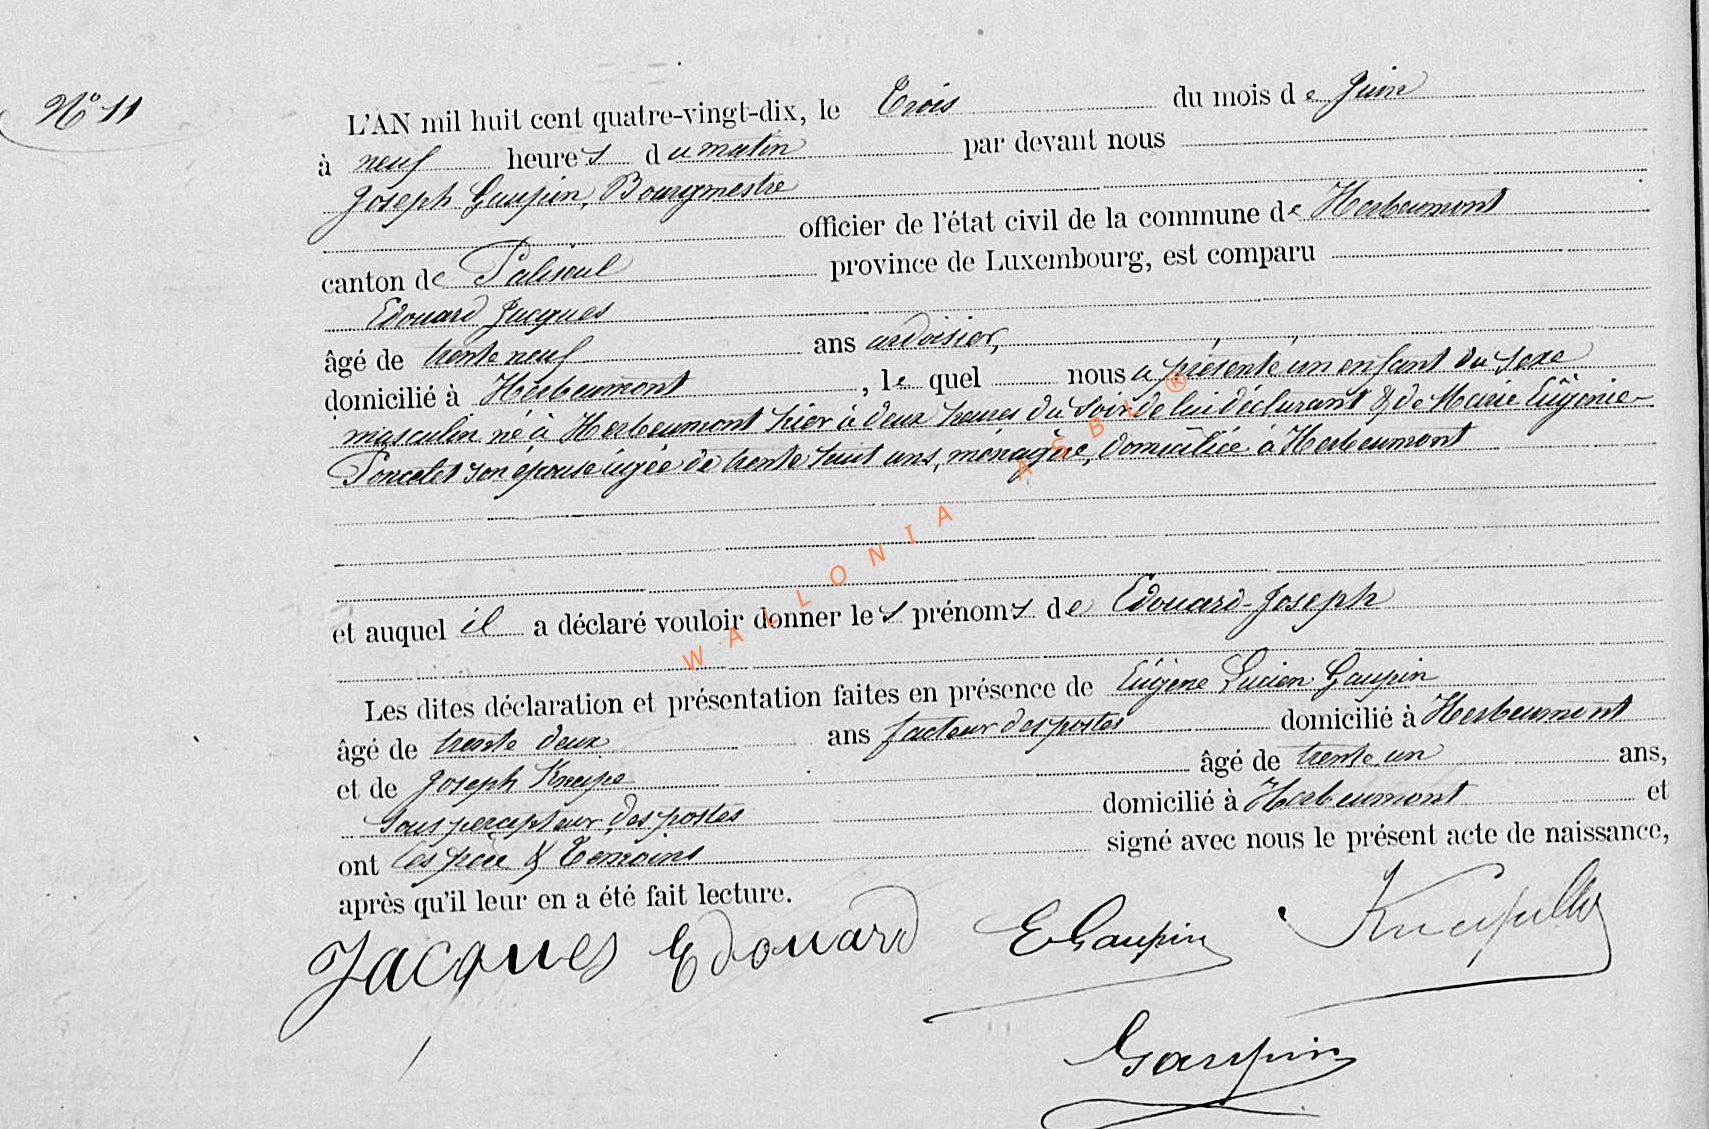 N° 11
L'AN mil huit cent quatre-vingt-dix, le Trois du mois de Juin
à neuf heures du matin par devant nous
Joseph Gaupin, Bourgmestre
officier de l'état civil de la commune de Herbeumont
canton de Paliseul province de Luxembourg, est comparu
Edouard Jacques
âgé de trente neuf ans ardoisier,
domicilié à Herbeumont, lequel nous a présenté un enfant du sexe
masculin né à Herbeumont hier à deux heures du soir de lui déclarant & de Marie Eugénie
Poncelet son épouse âgée de trente huit ans, ménagère, domiciliée à Herbeumont
WALLONIA ASBL ®
et auquel il a déclaré vouloir donner les prénoms de Edouard-Joseph
Les dites déclaration et présentation faites en présence de Eugène Lucien Gaupin
âgé de trente deux ans facteur des postes domicilié à Herbeumont
et de Joseph âgé de trente un ans,
Sous percepteur des postes domicilié à Herbeumont et
ont les père & Témoins signé avec nous le présent acte de naissance,
après qu'il leur en a été fait lecture.
Jacques Edouard EGaupin
Gaupin